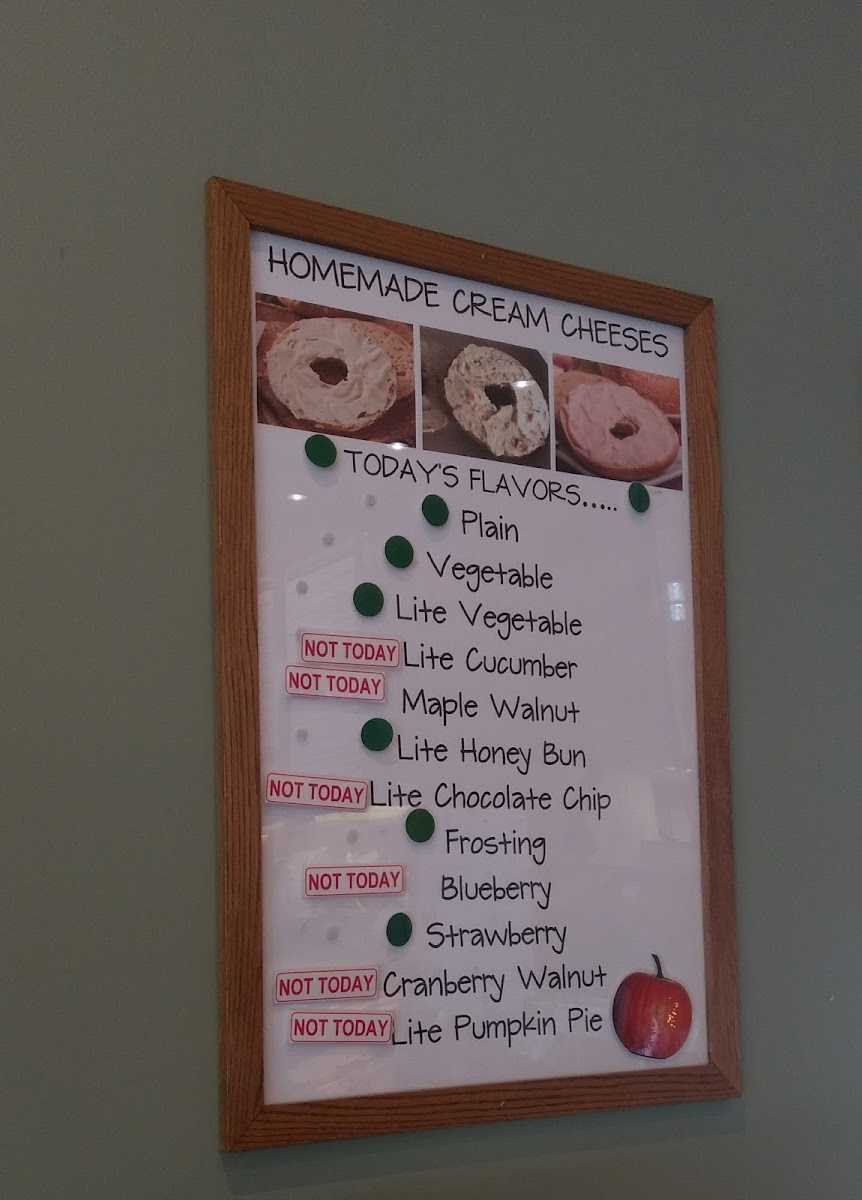 HOMEMADE CREAM CHEESES
TODAY'S FLAVORS.....
Plain
Vegetable
Lite Vegetable
NOT TODAY Lite Cucumber
NOT TODAY Maple Walnut
Lite Honey Bun
NOT TODAY Lite Chocolate Chip
Frosting
NOT TODAY Blueberry
Strawberry
NOT TODAY Cranberry Walnut
NOT TODAY Lite Pumpkin Pie